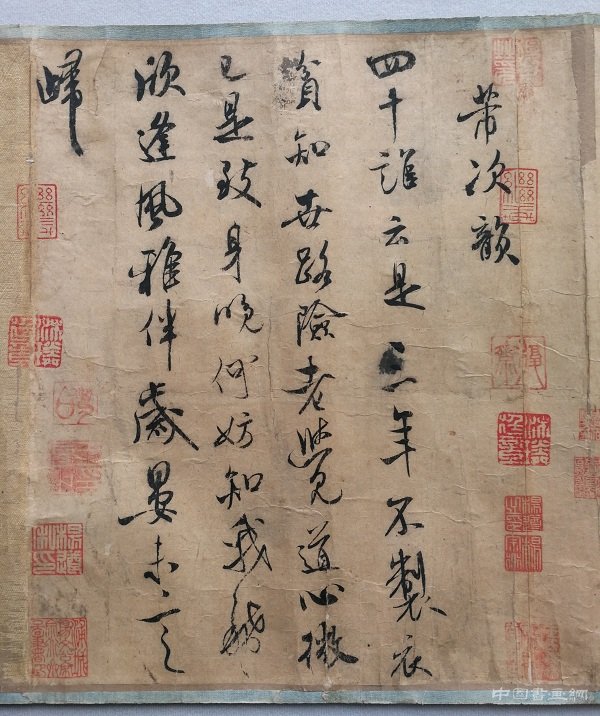 芾次韻
四十誰云是三年不製衣
貧知世路險老覺道心微
已是致身晚何妨知我稀
欣逢風雅伴歲晏未言
歸
中国書画網